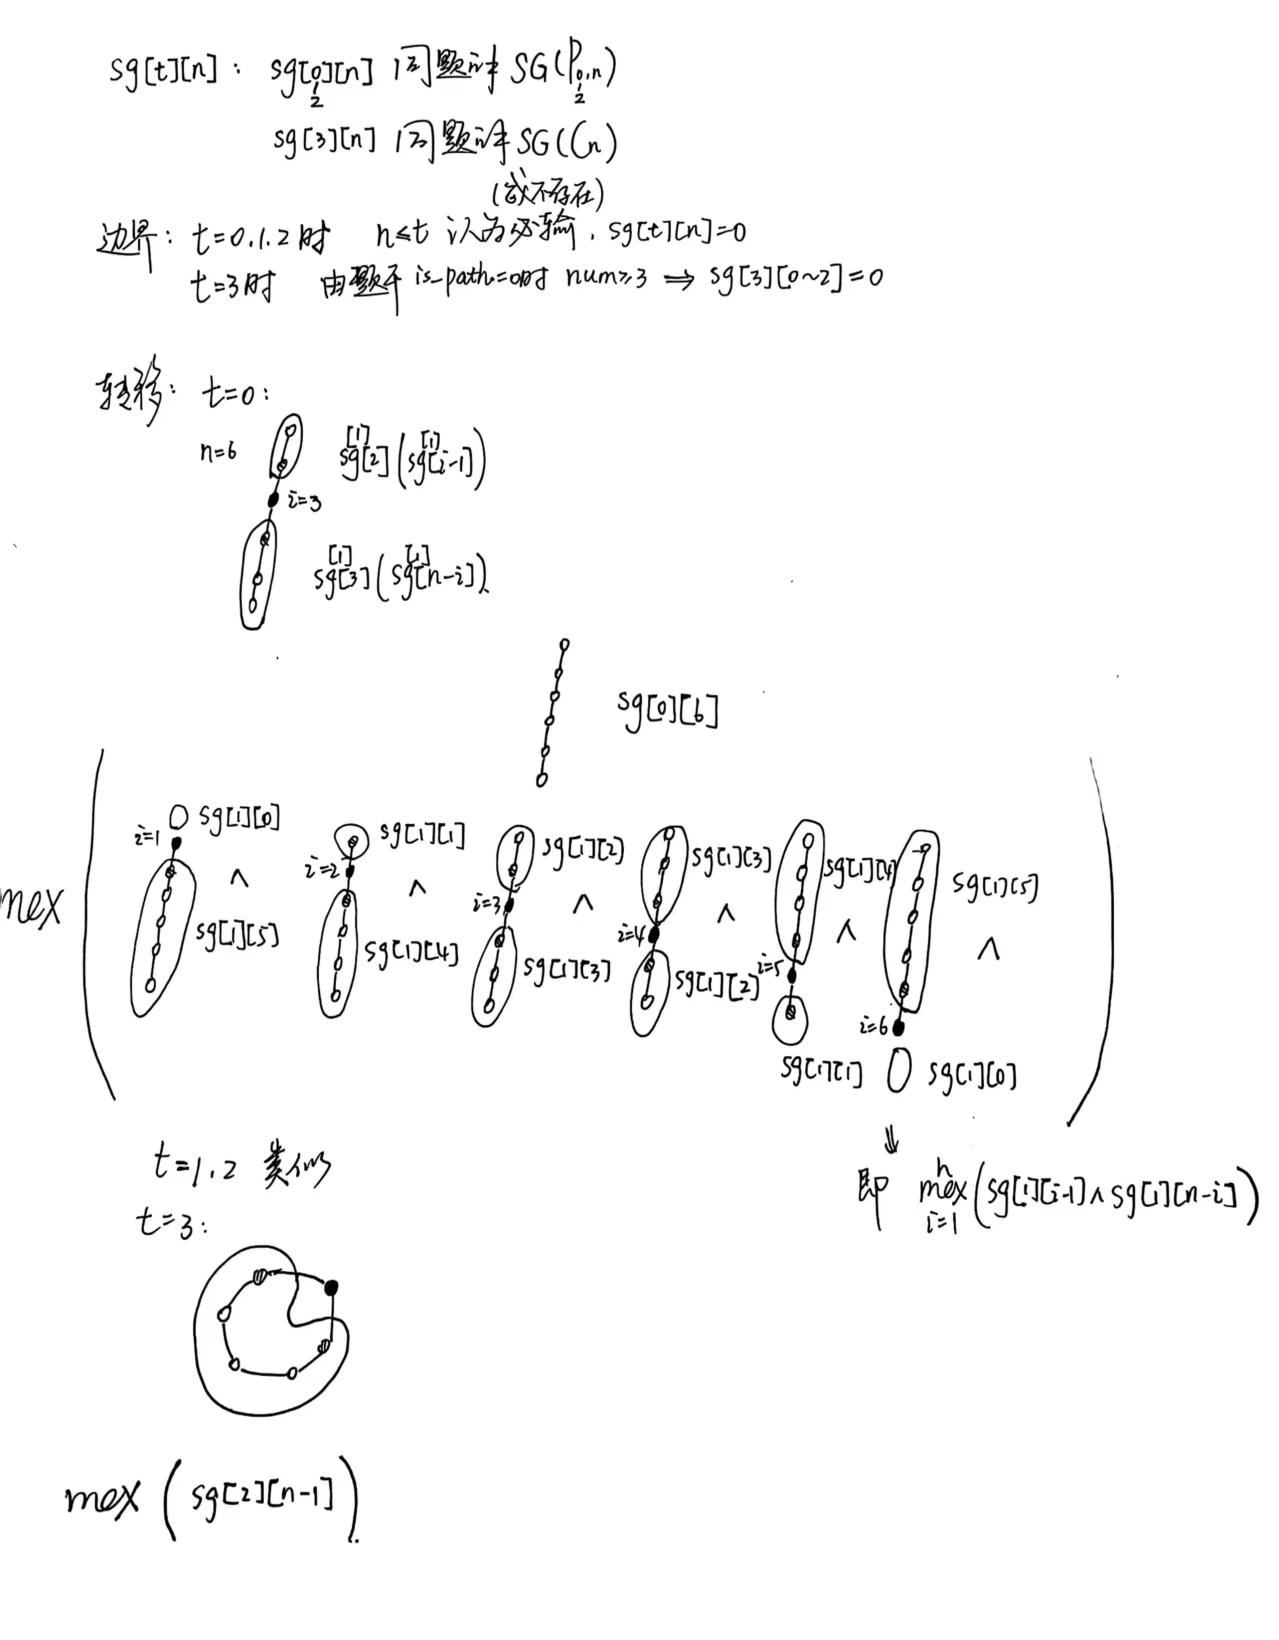 sg[t][n]: sg[0][n] 问题计求 SG(P0,n)
1 1
2 2
sg[3][n] 问题计求 SG(Cn)
(或不存在)
边界: t=0.1.2时 n≤t 认为必输, sg[t][n]=0
t=3时 由题干 is-path=0时 num≥3 ⇒ sg[3][0~2]=0
转移: t=0:
n=6
[1] [1]
sg[2] (sg[i-1])
i=3
[1] [1]
sg[3] (sg[n-i])
sg[0][6]
mex
sg[1][0] sg[1][1] sg[1][2] sg[1][3] sg[1][4] sg[1][5]
i=1 i=2 i=3 i=4 i=5 i=6
∧ ∧ ∧ ∧ ∧ ∧
sg[1][5] sg[1][4] sg[1][3] sg[1][2] sg[1][1] sg[1][0]
⇓
即 n mex i=1 (sg[1][i-1]∧sg[1][n-i])
t=1.2 类似
t=3:
mex (sg[2][n-1])